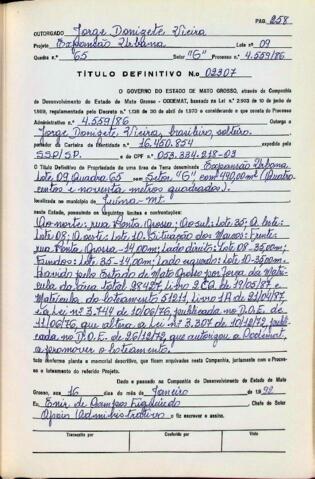 PAG. 258
OUTORGADO Jorge Donizete Vieira
Projeto Expansão Urbana Lote nº 09
Quadra nº 65 Setor "G" Processo nº 4.559/86
TÍTULO DEFINITIVO No 02307
O GOVERNO DO ESTADO DE MATO GROSSO, através da Companhia
de Desenvolvimento do Estado de Mato Grosso - CODEMAT, baseado na Lei nº 2.903 de 10 de junho
de 1969, regulamentada pelo Decreto n.º 1.138 de 30 de abril de 1970 e considerando o que consta do Processo
Administrativo nº 4.559/86 Outorga a
Jorge Donizete Vieira, brasileiro, solteiro,
portador da Carteira de Identidade nº 16.450.854 expedida pela
SSP/SP. e do CPF nº 053.384.218-03
O Título Definitivo de Propriedade de uma área de Terra denominada Expansão Urbana,
Lote 09 Quadra 65 Setor "G" com 490,00m² (Quatro
centos e noventa metros quadrados).
localizada no município de Juína-mt.
neste Estado, possuindo os seguintes limites e confrontações:
Ao norte: rua Ponta Grossa; Ao sul: Lote 35; A leste:
Lote 08; A oeste: Lote 10. Situação dos Marcos: Frente:
rua Ponta Grossa - 14,00m; Lado direito: Lote 08 - 35,00m;
Fundos: Lote 35 - 14,00m; Lado esquerdo: Lote 10 - 35,00m.
Havido pelo Estado de Mato Grosso por força da Matrí-
cula da área total 38427, Livro 2CQ de 19/05/87 e
Matrícula do loteamento 51211, Livro 1A de 21/04/87,
e da Lei nº 3.744 de 10/06/76, publicada no D.O.E. de
11/06/76, que altera a Lei nº 3.307 de 10/12/72, publi-
cada no D.O.E. de 26/12/72, que autorizou a Codemat,
a promover o loteamento.
tudo conforme planta e memorial descritivo, que ficam arquivados nesta Companhia, juntamente com o Proces-
so e loteamento do referido Projeto.
Dado e passado na Companhia de Desenvolvimento do Estado de Mato
Grosso, aos 16 dias do mês de Janeiro de 1992
Eu, Enir de Campos Figueiredo Chefe do Setor
Apoio Administrativo o fiz escrever e assino.
Transcrito por Conferido por Visto